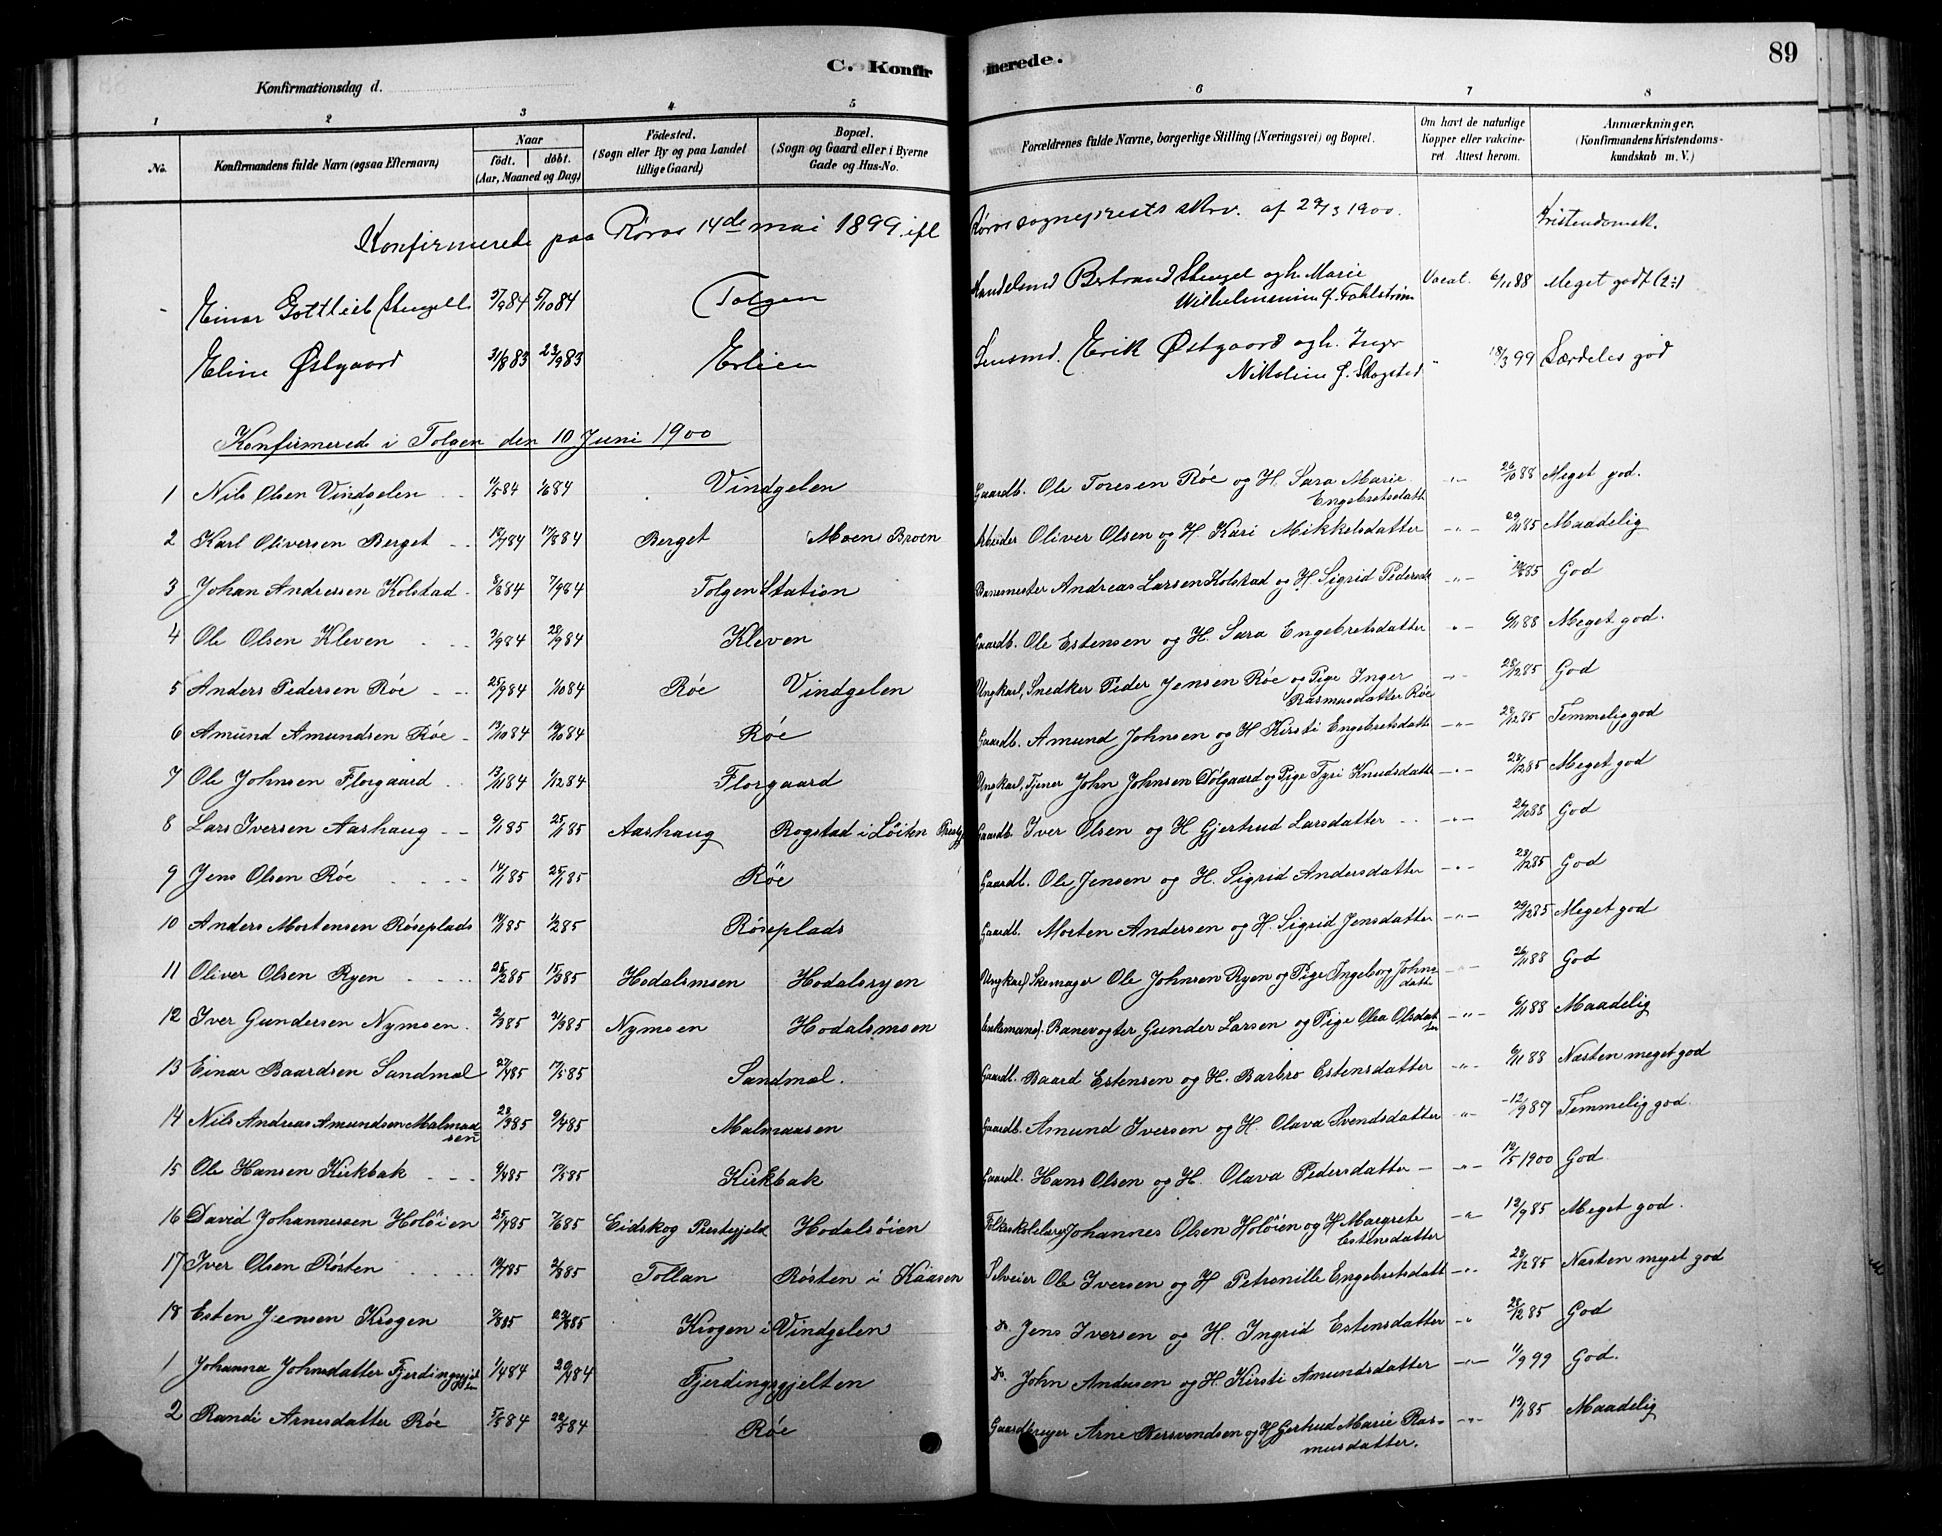 C. Konfirmerede. 89
Konfirmationsdag d.
1 2 3 4 5 6 7 8
No. Konfirmandens fulde Navn (ogsaa Efternavn) Naar födt. döbt. (Aar, Maaned og Dag) Födested. (Sogn eller By og paa Landet tillige Gaard) Bopæl. (Sogn og Gaard eller i Byerne Gade og Hus-No. Forældrenes fulde Navne, borgerlige Stilling (Næringsvei) og Bopæl. Om havt de naturlige Kopper eller vakcineret. Attest herom. Anmærkninger. (Konfirmandens Kristendomskundskab m. V.)
Konfirmerede paa Röros 14de mai 1899 ifl Röros sogneprests skrv. af 29/3 1900. Kristendomsk.
Einar Gottlieb Stengell 5/10 84 Tolgen Handelsmd Bertrand Stengel og h. Marie Vacat. 6/11 88 Meget godt (2÷)
Wilhelmine f. Fahlström
Eline Østgaard 31/8 83 23/9 83 Erlien Lensmd. Erik Østgaard og h. Inger " 18/3 99 Særdeles god
Nikoline f. Skogstad
Konfirmerede i Tolgen den 10 Juni 1900
1 Nils Olsen Vindgelen 84 84 Vindgelen Gaardb. Ole Toresen Röe og H. Sara Marie -"- 26/10 88 Meget god.
Engebretsdatt
2 Karl Oliversen Berget 84 17/8 84 Berget Moen Broen Arbeider Oliver Olsen og H. Kari Mikkelsdatter -"- 29/11 85 Maadelig
3 Johan Andreasen Kolstad 84 7/9 84 Tolgen Station Banemester Andreas Larsen Kolstad og H. Sigrid Pedersdt -"- 85 God
4 Ole Olsen Kleven 3/9 84 28/9 84 Kleven Gaardb. Ole Estensen og H. Sara Engebretsdatter -"- 6/11 88 Meget god.
5 Anders Pedersen Röe 25/9 84 1/10 84 Röe Vindgelen Ungkarl, Snedker Peder Jensen Röe og Pige Inger -"- 28/12 85 God
Rasmusdatter Röe
6 Amund Amundsen Röe 13/10 84 19/10 84 Röe Gaardb. Amund Johnsen og H Kirsti Engebretsdatt -"- 28/12 85 Temmelig god
7 Ole Johnsen Florgaard 13/11 84 1/12 84 Florgaard Ungkarl, Tjener John Johnsen Dölgaard og Pige Tyri Knudsdatt -"- 28/12 85 Meget god
8 Lars Iversen Aashaug 9/1 85 25/1 85 Aashaug Rogstad i Löiten Prestgj Gaardb. Iver Olsen og H Gjertrud Larsdatter -"- 88 God
9 Jens Olsen Röe 14/1 85 25/1 85 Röe Gaardb. Ole Jensen og H. Sigrid Andersdatter -"- 28/12 85 God
10 Anders Mortensen Röseplads 19/1 85 1/2 85 Röseplads Gaardb. Morten Andersen og H. Sigrid Jensdatter -"- 29/12 85 Meget god
11 Oliver Olsen Ryen 25/2 85 15/3 85 Hodalsmoen Hodalsryen Ungkarl Skomager Ole Johnsen Ryen og Pige Ingeborg Johnsdatt 26/11 88 God
12 Iver Gundersen Nymoen 2/3 85 85 Nymoen Hodalsmoen Enkemand. Banevogter Gunder Larsen og Pige Olea Olsdatter -"- 6/11 88 Maadelig
13 Einar Baardsen Sandmæl 27/4 85 17/5 85 Sandmæl. Gaardb. Baard Estensen og H. Barbro Estensdatter -"- 6/11 88 Næsten meget god
14 Nils Andreas Amundsen Malmaasen 29/3 85 9/4 85 Malmaasen Gaardb. Amund Iversen og H. Olava Svendsdatter -"- 12/9 87 Temmelig god.
15 Ole Hansen Kirkbak 9/4 85 17/5 85 Kirkbak Gaardb. Hans Olsen og H. Olava Pedersdatter -"- 12/5 1900 God
16 David Johannessen Holöien 25/4 85 7/6 85 Eidskog Prestegjeld Hodalsöien Folkeskolelærer Johannes Olsen Holöien og H Margrete -"- 12/9 85 Meget god.
Estensdatter
17 Iver Olsen Rösten 19/7 85 2/8 85 Tollan Rösten i Kaasen Selveier Ole Iversen og H Petronille Engebretsdatt -"- 28/12 85 Næsten meget god
18 Esten Jensen Krogen 85 23/8 85 Krogen i Vindgelen Do. Jens Iversen og H. Ingrid Estensdatter -"- 28/12 85 God
1 Johanna Johnsdatter Fjerdingsgjelten 1/4 84 20/4 84 Fjerdingsgjelten Do. John Andersen og H. Kirsti Amundsdatter -"- 11/9 99 God.
2 Randi Arnesdatter Röe 5/5 84 22/5 84 Röe Gaardbruger Arne Bersvendsen og H Gertrud Marie Ras- -"- 85 Maadelig
musdatter.